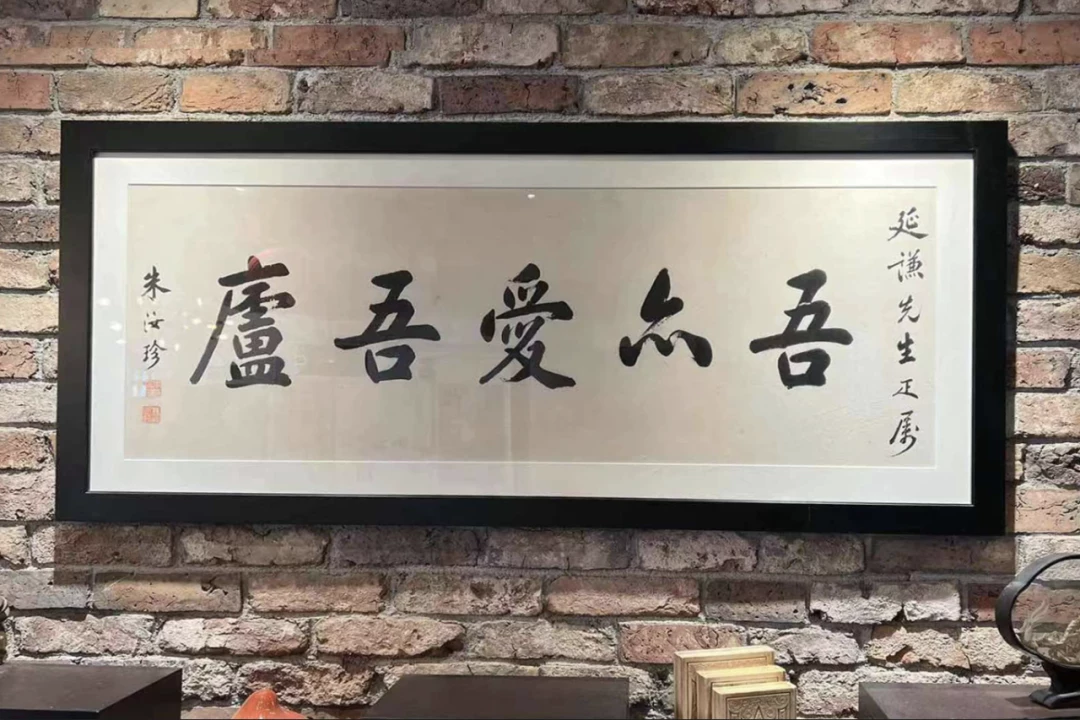 延謙先生正属
吾亦愛吾廬
朱汝珍